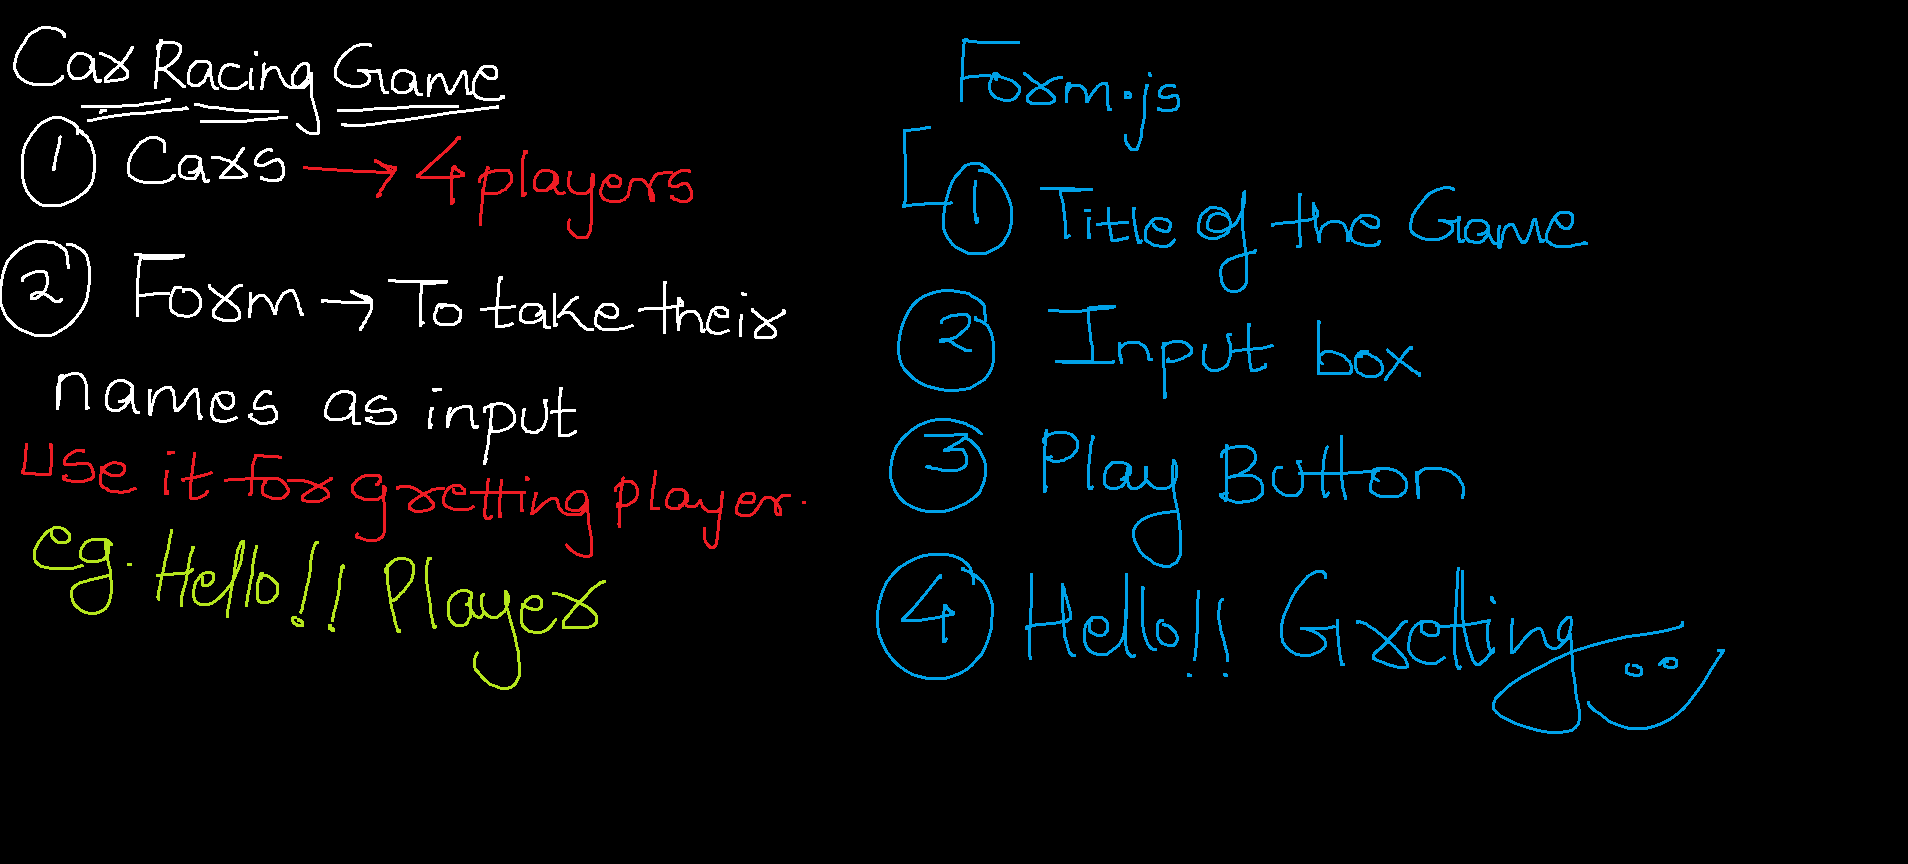 Car Racing Game
1 Cars → 4 players
2 Form → To take their
names as input
Use it for gretting player.
eg. Hello!! Player
Form.js
1 Title of the Game
2 Input box
3 Play Button
4 Hello!! Gretting